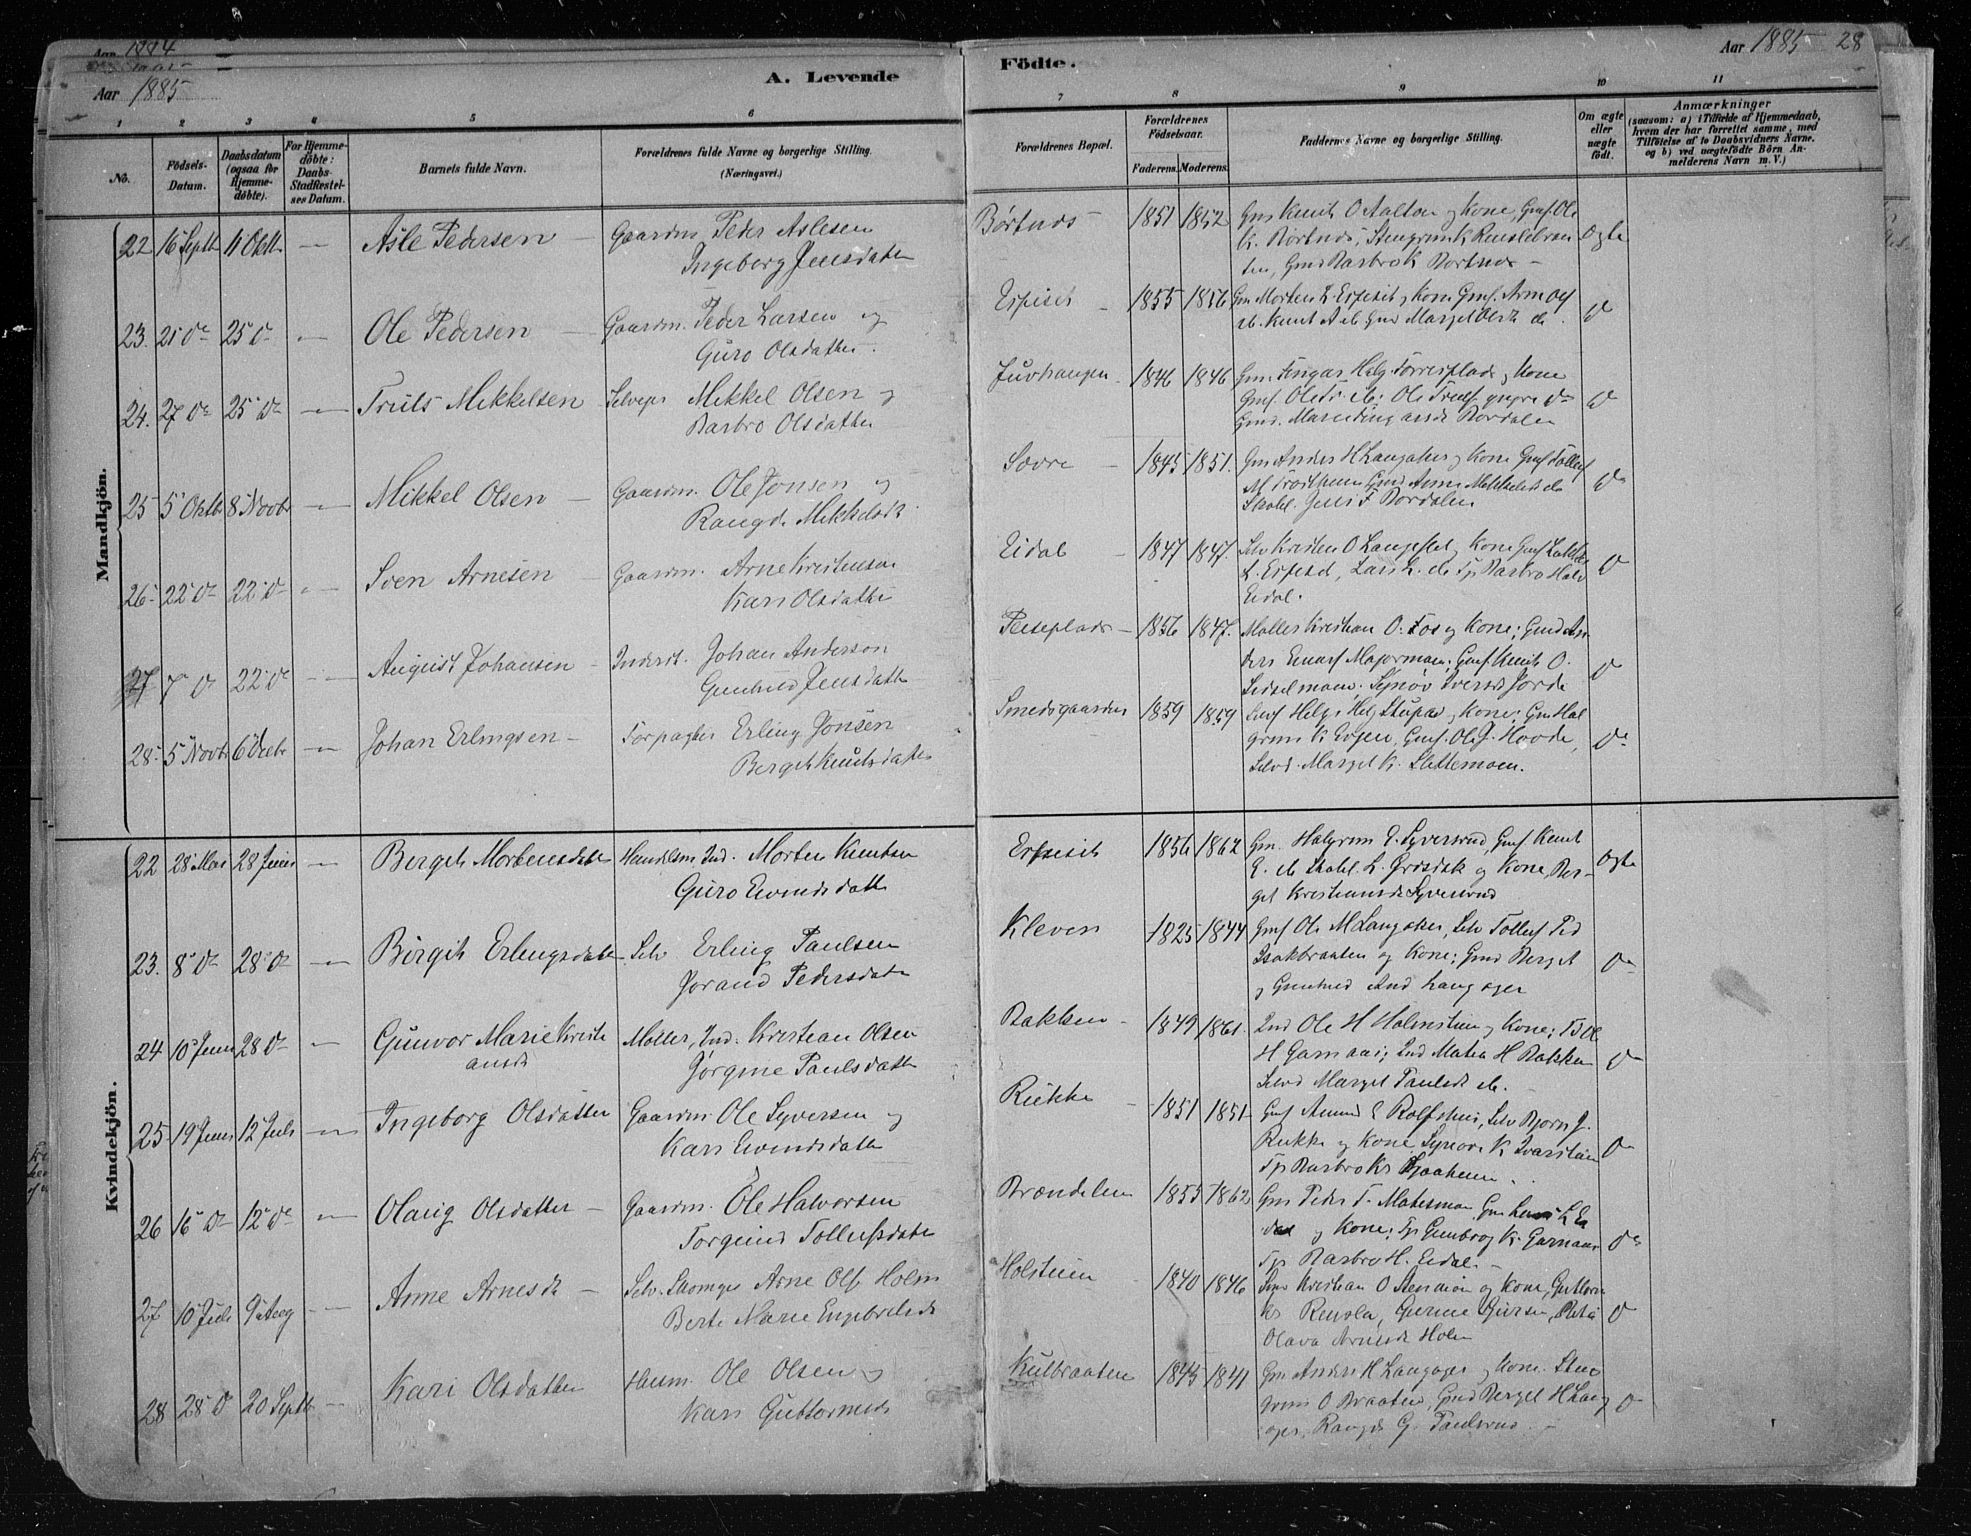 Aar 1884
Aar 1885
A. Levende
Födte.
Aar 1885 28
1 2 3 4 5 6 7 8 9 10 11
No.
Födsels-
Datum.
Daabsdatum
(ogsaa for
Hjemme-
döbte).
For Hjemme-
döbte:
Daabs-
Stadfæstel-
ses Datum.
Barnets fulde Navn.
Forældrenes fulde Navne og borgerlige Stilling.
(Næringsvei.)
Forældrenes Bopæl.
Forældrenes
Födselsaar.
Faderens. Moderens.
Faddernes Navne og borgerlige Stilling.
Om ægte
eller
uægte
födt.
Anmærkninger
(saasom: a) i Tilfælde af Hjemmedaab,
hvem der har forrettet samme, med
Tilföielse af to Daabsvidners Navne.
og b) ved uægtefödte Börn An-
melderens Navn m. V.)
Mandkjön.
22 16 Septb 11 Oktb — Asle Pedersen — Gaardm Peder Aslesen
Ingeborg Jensdatter
Børtnes — 1851 1852 Gm Knut O Aalton og Kone, Gmf. Ole
K. Børtnes, Stengrim K
ten, Gmd Barbro K Bortnes — Ægte
23. 21 Do 25 Do — Ole Pedersen — Gaardm. Peder Larsen og
Guro Olsdatter.
Espeset — 1855 1856 Gm Morten L. Espeset og Kone Gmf. Arne Olf
do. Knut A do Gmd Marget Olsd. do. Do
24. 27 Do 25 Do — Truls Mikkelsen Selveier Mikkel Olsen og
Barbro Olsdatter
Juvhaugen 1846 1846 Gm. Helg. og Kone
Gmf. Ole Tr. do. Ole Trulsf yngre Do
Gmd. Bordalen Do
25 5 Oktbr 8 Novbr — Mikkel Olsen — Gaardm. Ole Jonsen og
Rangd. Mikkelsdt.
Sævre — 1845 1851. Gm Anders H Langaker og Kone Gmf Tollef
M. Gmd Anne Mikkelsd. do
Skolel. Jens F Bordalen Do
26 22 Do 22 Do — Sven Arnesen — Gaardm. Arne Kristensen
Kari Olsdatter
Eidal — 1847 1847. Selv Kristen O Langeset og Kone Gmf
L. Espeset, Lars L. do Tp Barbro Halv
Eidal. Do
27 7 Do 22 Do — August Johansen — Inderst. Johan Anderson
Gunhild Jensdatter
Perseplads — 1856 1847. Møller Kristian O. Fos og Kone; Gmd An
ders Majormoen; Gmf Knut O.
Sidselmoen. Synøv Iversd Jorde Do
28 5 Novbr 6 Decbr — Johan Erlingsen — Forpagter Erling Jonsen
Berget Knutsdatter
Smedsgaarden 1859 1859 Helge Helg Stupar og Kone; Gm Hal
grim K Evjen, Gmf. Ole J. Hovde,
Selvd. Marget K. Slettemoen. Do
Kvindekjön.
22 28 Mai 28 Juni — Berget Mortensdatter Handelsm Ind. Morten Knutsen
Guro Eivindsdatter
Espeset 1856 1862 Gm. Halgrim E. Syversrud, Gmf Knut
E. do Skolel. L. Grösdok og Kone, Ber-
get Kristiansd Syversrud Ægte
23. 8 Do 28 Do — Birgit Erlingsdatter Selv Erling Paulsen
Jorand Pedersdatter
Kleven 1825 1844 Gmf Ole M Langaker, Selv Tollef Ped
Isakbraaten og Kone; Gmd Berget
og Gunhild And Langager Do
24 10 Juni 28 Do — Gunvor Marie Kristi
ansd. Møller, Ind. Kristian Olsen
Jørgine Paulsdatter
Bakken — 1849 1861. Ind Ole H Holmstien og Kone; Tj Ol
H Garnaas; Ind Mathea H Bakken
Selvd Marget Paulsd. do. — Do
25 19 Juni 12 Juli — Ingeborg Olsdatter Gaardm. Ole Syversen og
Kari Eivindsdatter
Rukke — 1851 1851 Gmf Amund E Rolfshus, Selv Bjørn J.
Rukke og Kone, Synøve K
Tp Barbro Kr Do
26 16 Do 12 Do — Olaug Olsdatter — Gaardm. Ole Halvorsen
Torgund Tollefsdatter
Brændelen 1855 1862 Gm Peder T. Matesmoen Gm L Ei
dal og Kone; Tp Gunbjørg K. Garnaas
Tp Barbro H. Eidal. — Do
27 10 Juli 9 Aug — Anne Arnesdt — Selv. Skomager Arne Olf Holm
Berte Marie Engebretsd.
Holstien — 1840 1846 Kristian O Stenmoen og Kone, Guttorm
Kr Rensla,
Olava Arnesdt Holm Do
28 28 Do 20 Septb — Kari Olsdatter Husm. Ole Olsen og
Kari Guttormsd.
Kulbraaten 1843 1841 Gm Anders H Langager og Kone. Sten
grim O Braaten, Gmd Berget H Lang
ager, Rangd. G. Paulsrud. — Do